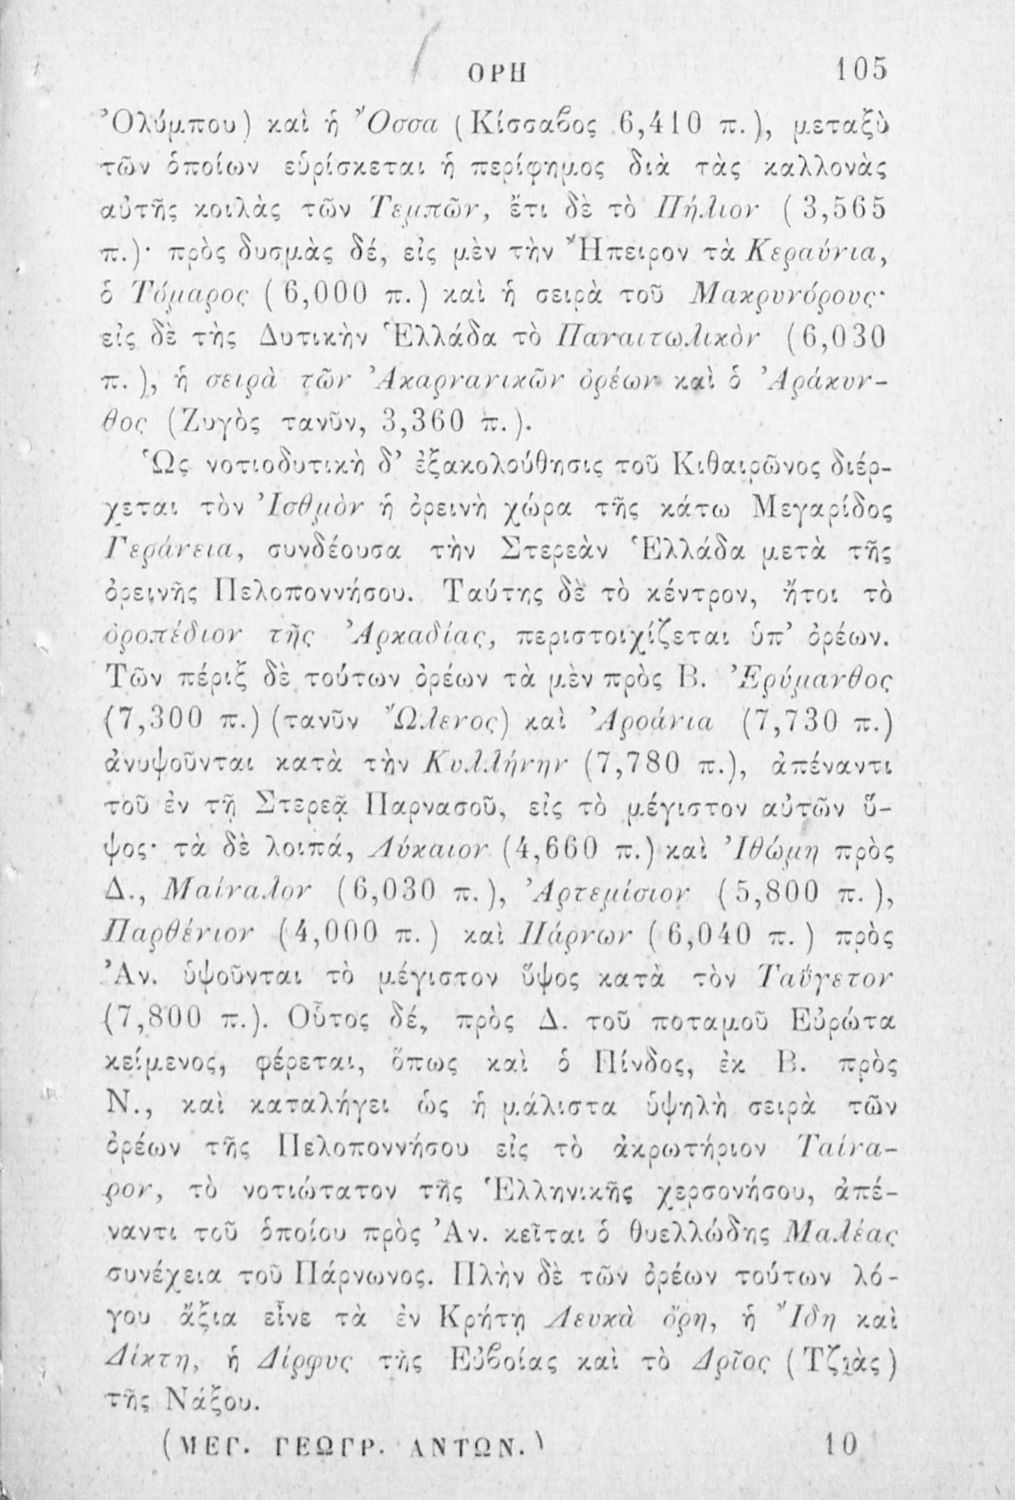 ΟΡΗ 105
Ὀλύμπου) καὶ ἡ Ὄσσα (Κίσσαβος 6,410 π.), μεταξὺ
τῶν ὁποίων εὑρίσκεται ἡ περίφημος διὰ τὰς καλλονὰς
αὐτῆς κοιλὰς τῶν Τεμπῶν, ἔτι δὲ τὸ Πήλιον (3,565
π.)· πρὸς δυσμὰς δέ, εἰς μὲν τὴν Ἤπειρον τὰ Κεραύνια,
ὁ Τόμαρος (6,000 π.) καὶ ἡ σειρὰ τοῦ Μακρυνόρους·
εἰς δὲ τὴς Δυτικὴν Ἑλλάδα τὸ Παναιτωλικὸν (6,030
π.), ἡ σειρὰ τῶν Ἀκαρνανικῶν ὀρέων καὶ ὁ Ἀράκυν-
θος (Ζυγὸς τανῦν, 3,360 π.).
Ὡς νοτιοδυτικὴ δ’ ἐξακολούθησις τοῦ Κιθαιρῶνος διέρ-
χεται τὸν Ἰσθμὸν ἡ ὀρεινὴ χώρα τῆς κάτω Μεγαρίδος
Γεράνεια, συνδέουσα τὴν Στερεὰν Ἑλλάδα μετὰ τῆς
ὀρεινῆς Πελοποννήσου. Ταύτης δὲ τὸ κέντρον, ἤτοι τὸ
ὀροπέδιον τῆς Ἀρκαδίας, περιστοιχίζεται ὑπ’ ὀρέων.
Τῶν πέριξ δὲ τούτων ὀρέων τὰ μὲν πρὸς Β. Ἐρύμανθος
(7,300 π.) (τανῦν Ὤλενος) καὶ Ἀροάνια (7,730 π.)
ἀνυψοῦνται κατὰ τὴν Κυλλήνην (7,780 π.), ἀπέναντι
τοῦ ἐν τῇ Στερεᾷ Παρνασοῦ, εἰς τὸ μέγιστον αὐτῶν ὕ-
ψος· τὰ δὲ λοιπά, Λύκαιον (4,660 π.) καὶ Ἰθώμη πρὸς
Δ., Μαίναλον (6,030 π.), Ἀρτεμίσιον (5,800 π.),
Παρθένιον (4,000 π.) καὶ Πάρνων (6,040 π.) πρὸς
Ἀν. ὑψοῦνται τὸ μέγιστον ὕψος κατὰ τὸν Ταΰγετον
(7,800 π.). Οὗτος δέ, πρὸς Δ. τοῦ ποταμοῦ Εὐρώτα
κείμενος, φέρεται, ὅπως καὶ ὁ Πίνδος, ἐκ Β. πρὸς
Ν., καὶ καταλήγει ὡς ἡ μάλιστα ὑψηλὴ σειρὰ τῶν
ὀρέων τῆς Πελοποννήσου εἰς τὸ ἀκρωτήριον Ταίνα-
ρον, τὸ νοτιώτατον τῆς Ἑλληνικῆς χερσονήσου, ἀπέ-
ναντι τοῦ ὁποίου πρὸς Ἀν. κεῖται ὁ θυελλώδης Μαλέας
συνέχεια τοῦ Πάρνωνος. Πλὴν δὲ τῶν ὀρέων τούτων λό-
γου ἄξια εἶνε τὰ ἐν Κρήτῃ Λευκὰ ὄρη, ἡ Ἴδη καὶ
Δίκτη, ἡ Δίρφυς τῆς Εὐβοίας καὶ τὸ Δρῖος (Τζιὰς)
τῆς Νάξου.
(ΜΕΓ. ΓΕΩΓΡ. ΑΝΤΩΝ.) 10